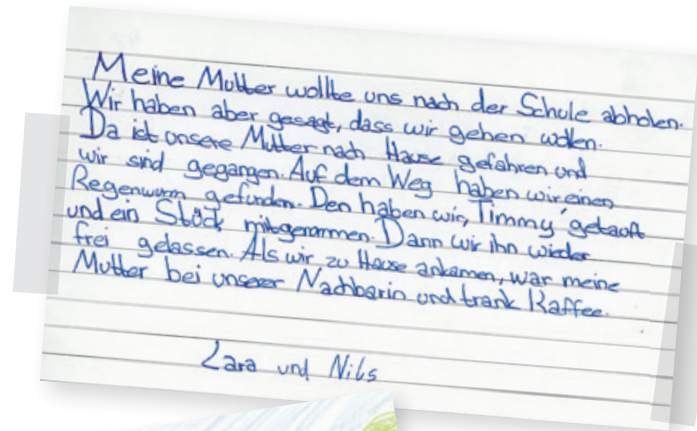 Meine Mutter wollte uns nach der Schule abholen.
Wir haben aber gesagt, dass wir gehen wollen.
Da ist unsere Mutter nach Hause gefahren und
wir sind gegangen. Auf dem Weg haben wir einen
Regenwurm gefunden. Den haben wir, Timmy' getauft
und ein Stück mitgenommen. Dann wir ihn wieder
frei gelassen. Als wir zu Hause ankamen, war meine
Mutter bei unserer Nachbarin und trank Kaffee.
Lara und Nils